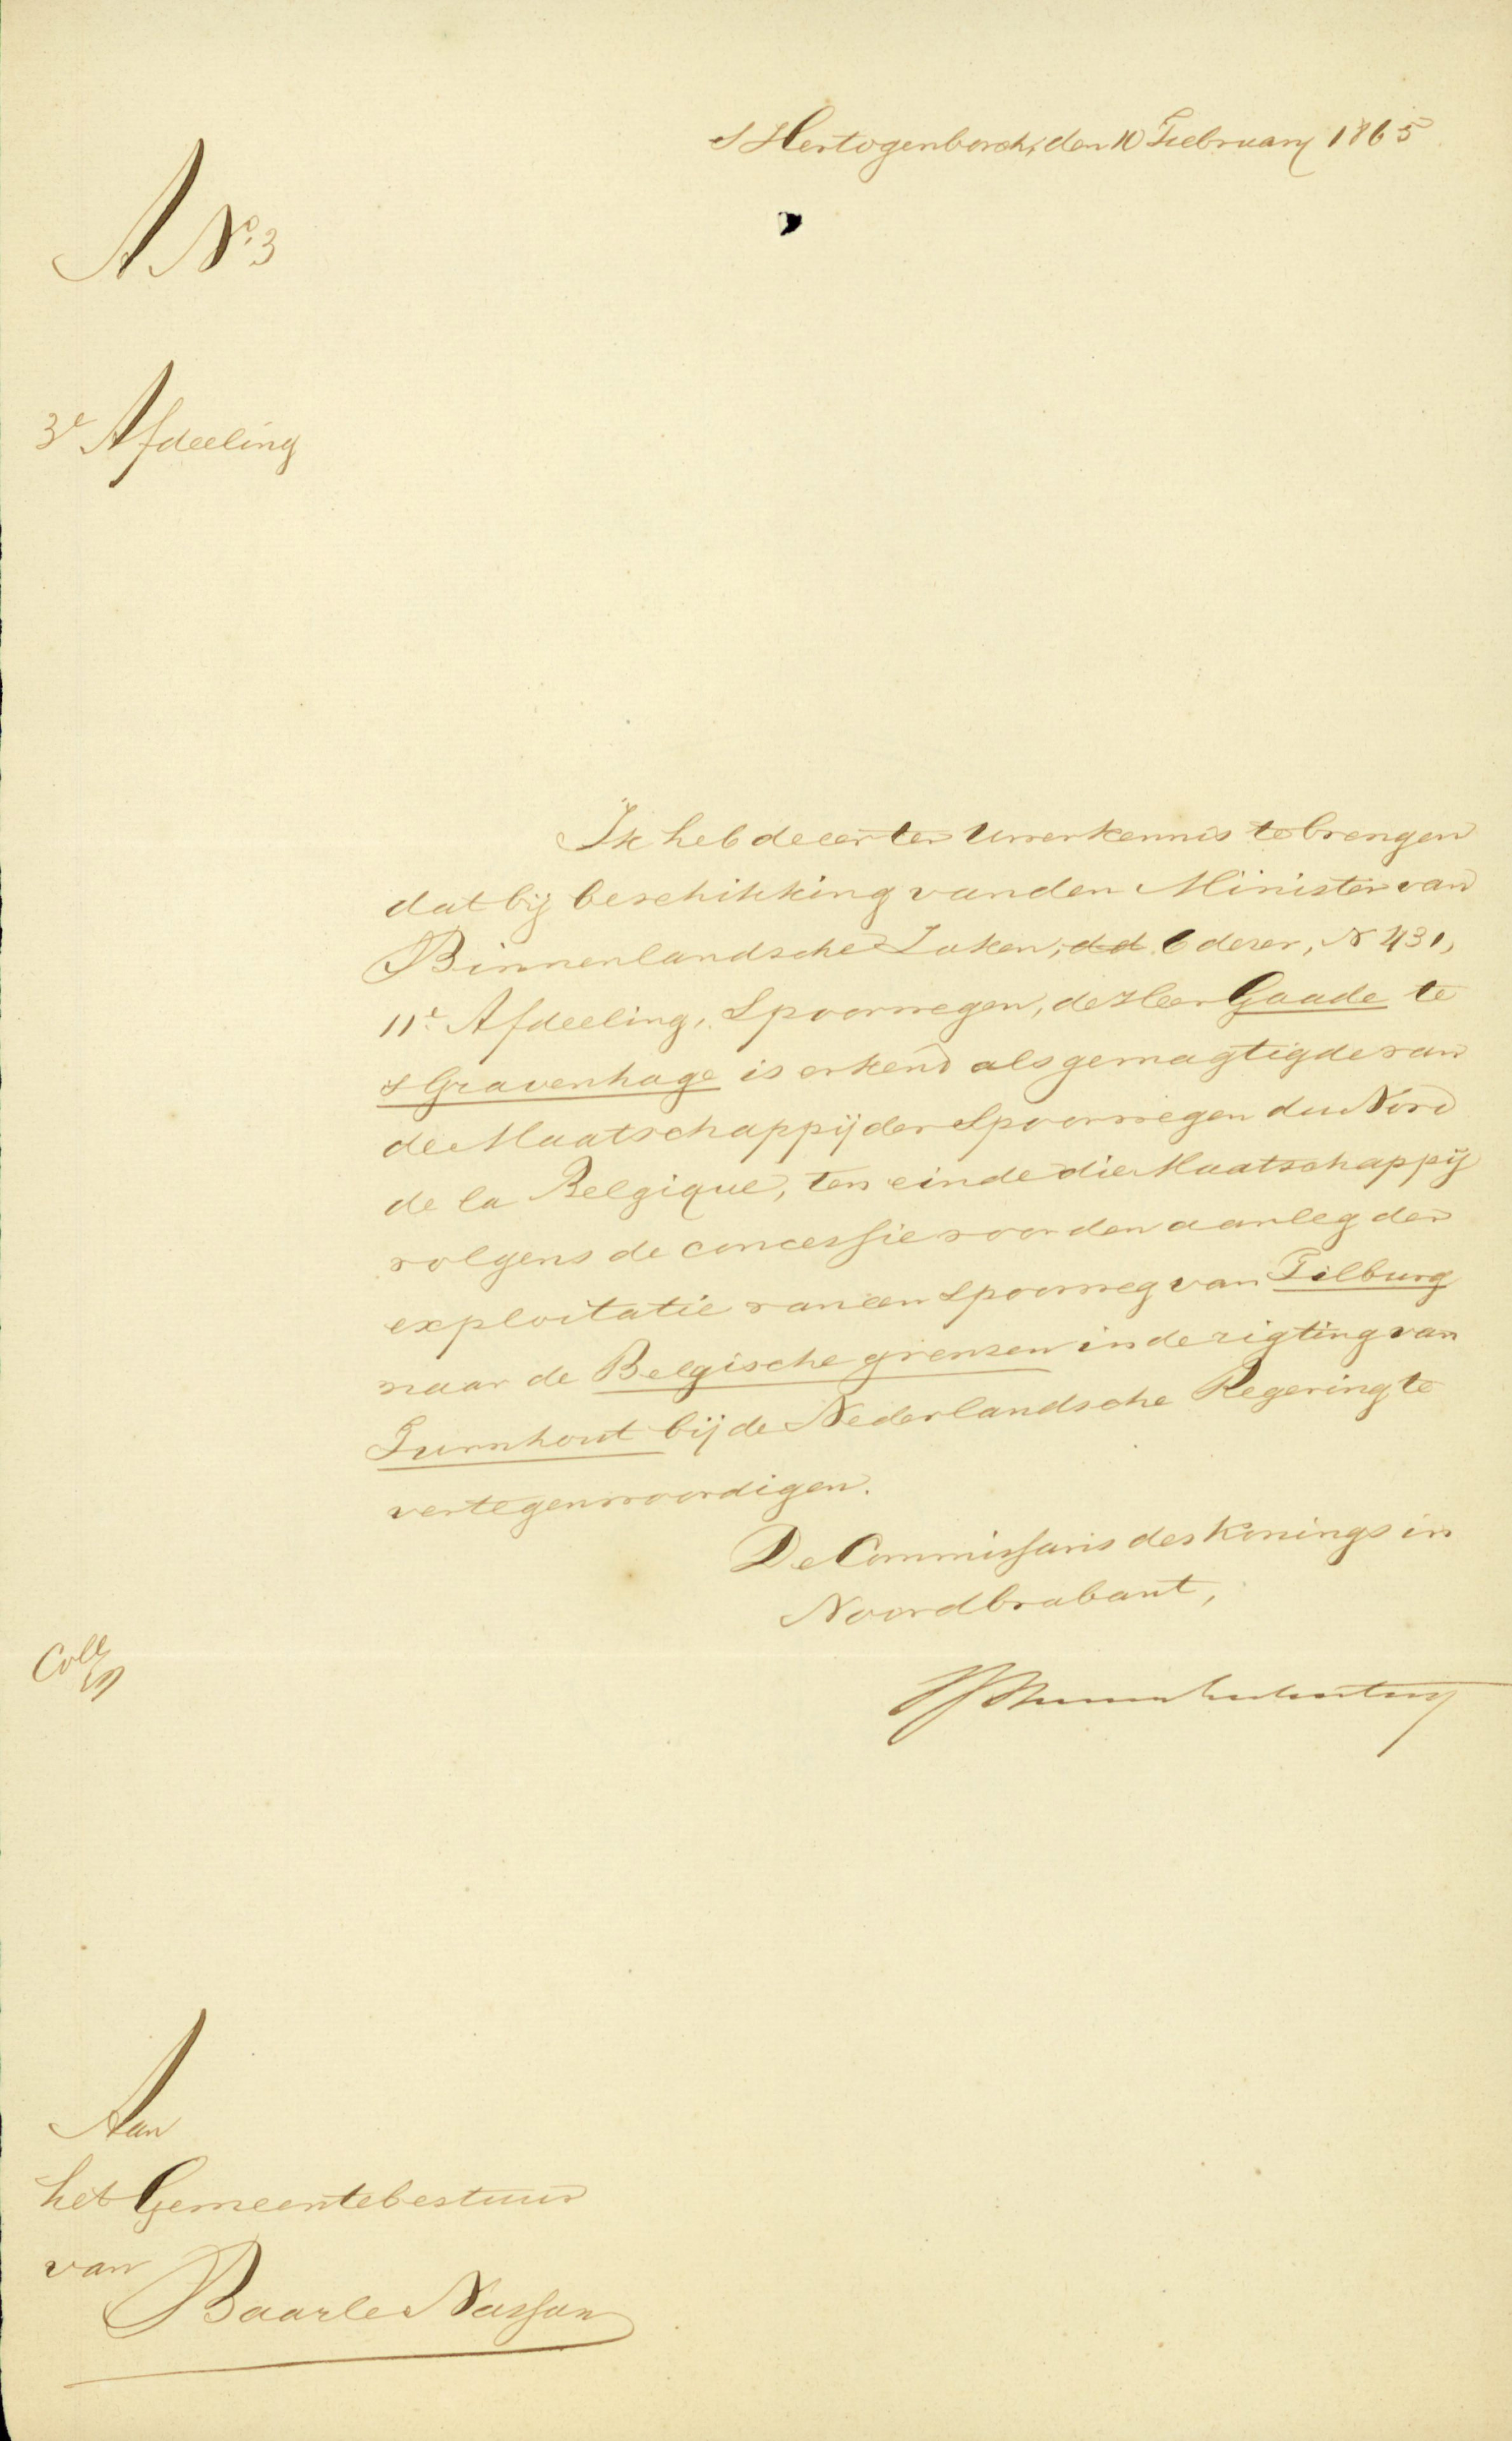 s Hertogenbosch, den 10 Februarij 1865
A No. 3
3e Afdeeling
Ik heb de eer ter Uwer kennis te brengen
dat bij beschikking van den Minister van
Binnenlandsche Zaken, d.d. 6 dezer, N 431,
11e Afdeeling, Spoorwegen, de Heer Gaade te
s Gravenhage is erkend als gemagtigde van
de Maatschappij der Spoorwegen du Nord
de la Belgique, ten einde die Maatschappij
volgens de concessie voor den aanleg der
exploitatie van een spoorweg van Tilburg
naar de Belgische grenzen in de rigting van
Turnhout bij de Nederlandsche Regering te
vertegenwoordigen.
De Commissaris des Konings in
Noordbrabant,
Coll
Aan
het Gemeentebestuur
van
Baarle Nassau